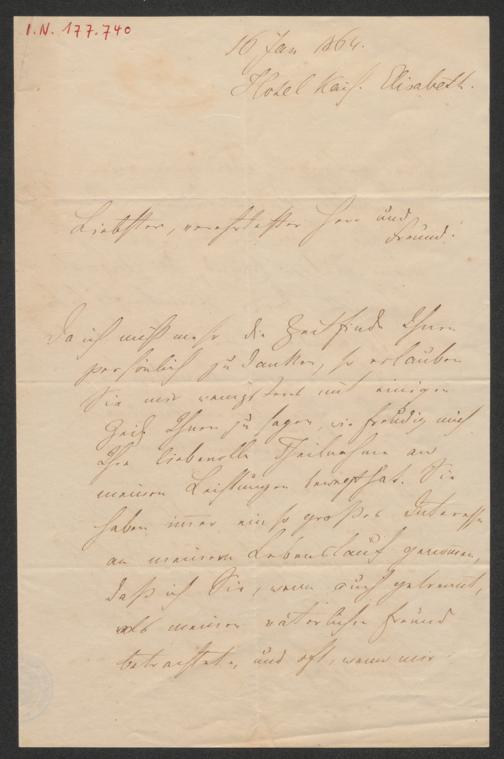 I.N. 177.740
16 Jan 1864.
Hotel Kais. Elisabeth.
Liebster, verehrtester Herr und
Freund!
Da ich nicht mehr die Zeit finde Ihnen
persönlich zu danken, so erlauben
Sie mir wenigstens mit einigen
Zeilen Ihnen zu sagen, wie freudig mich
Ihre liebevolle Theilnahme an
meinen Leistungen bewegt hat. Sie
haben immer ein so großes Interesse
an meinem Lebenslauf genommen,
daß ich Sie, wenn auch getrennt,
als meinen väterlichen Freund
betrachtete, und oft, wenn mir